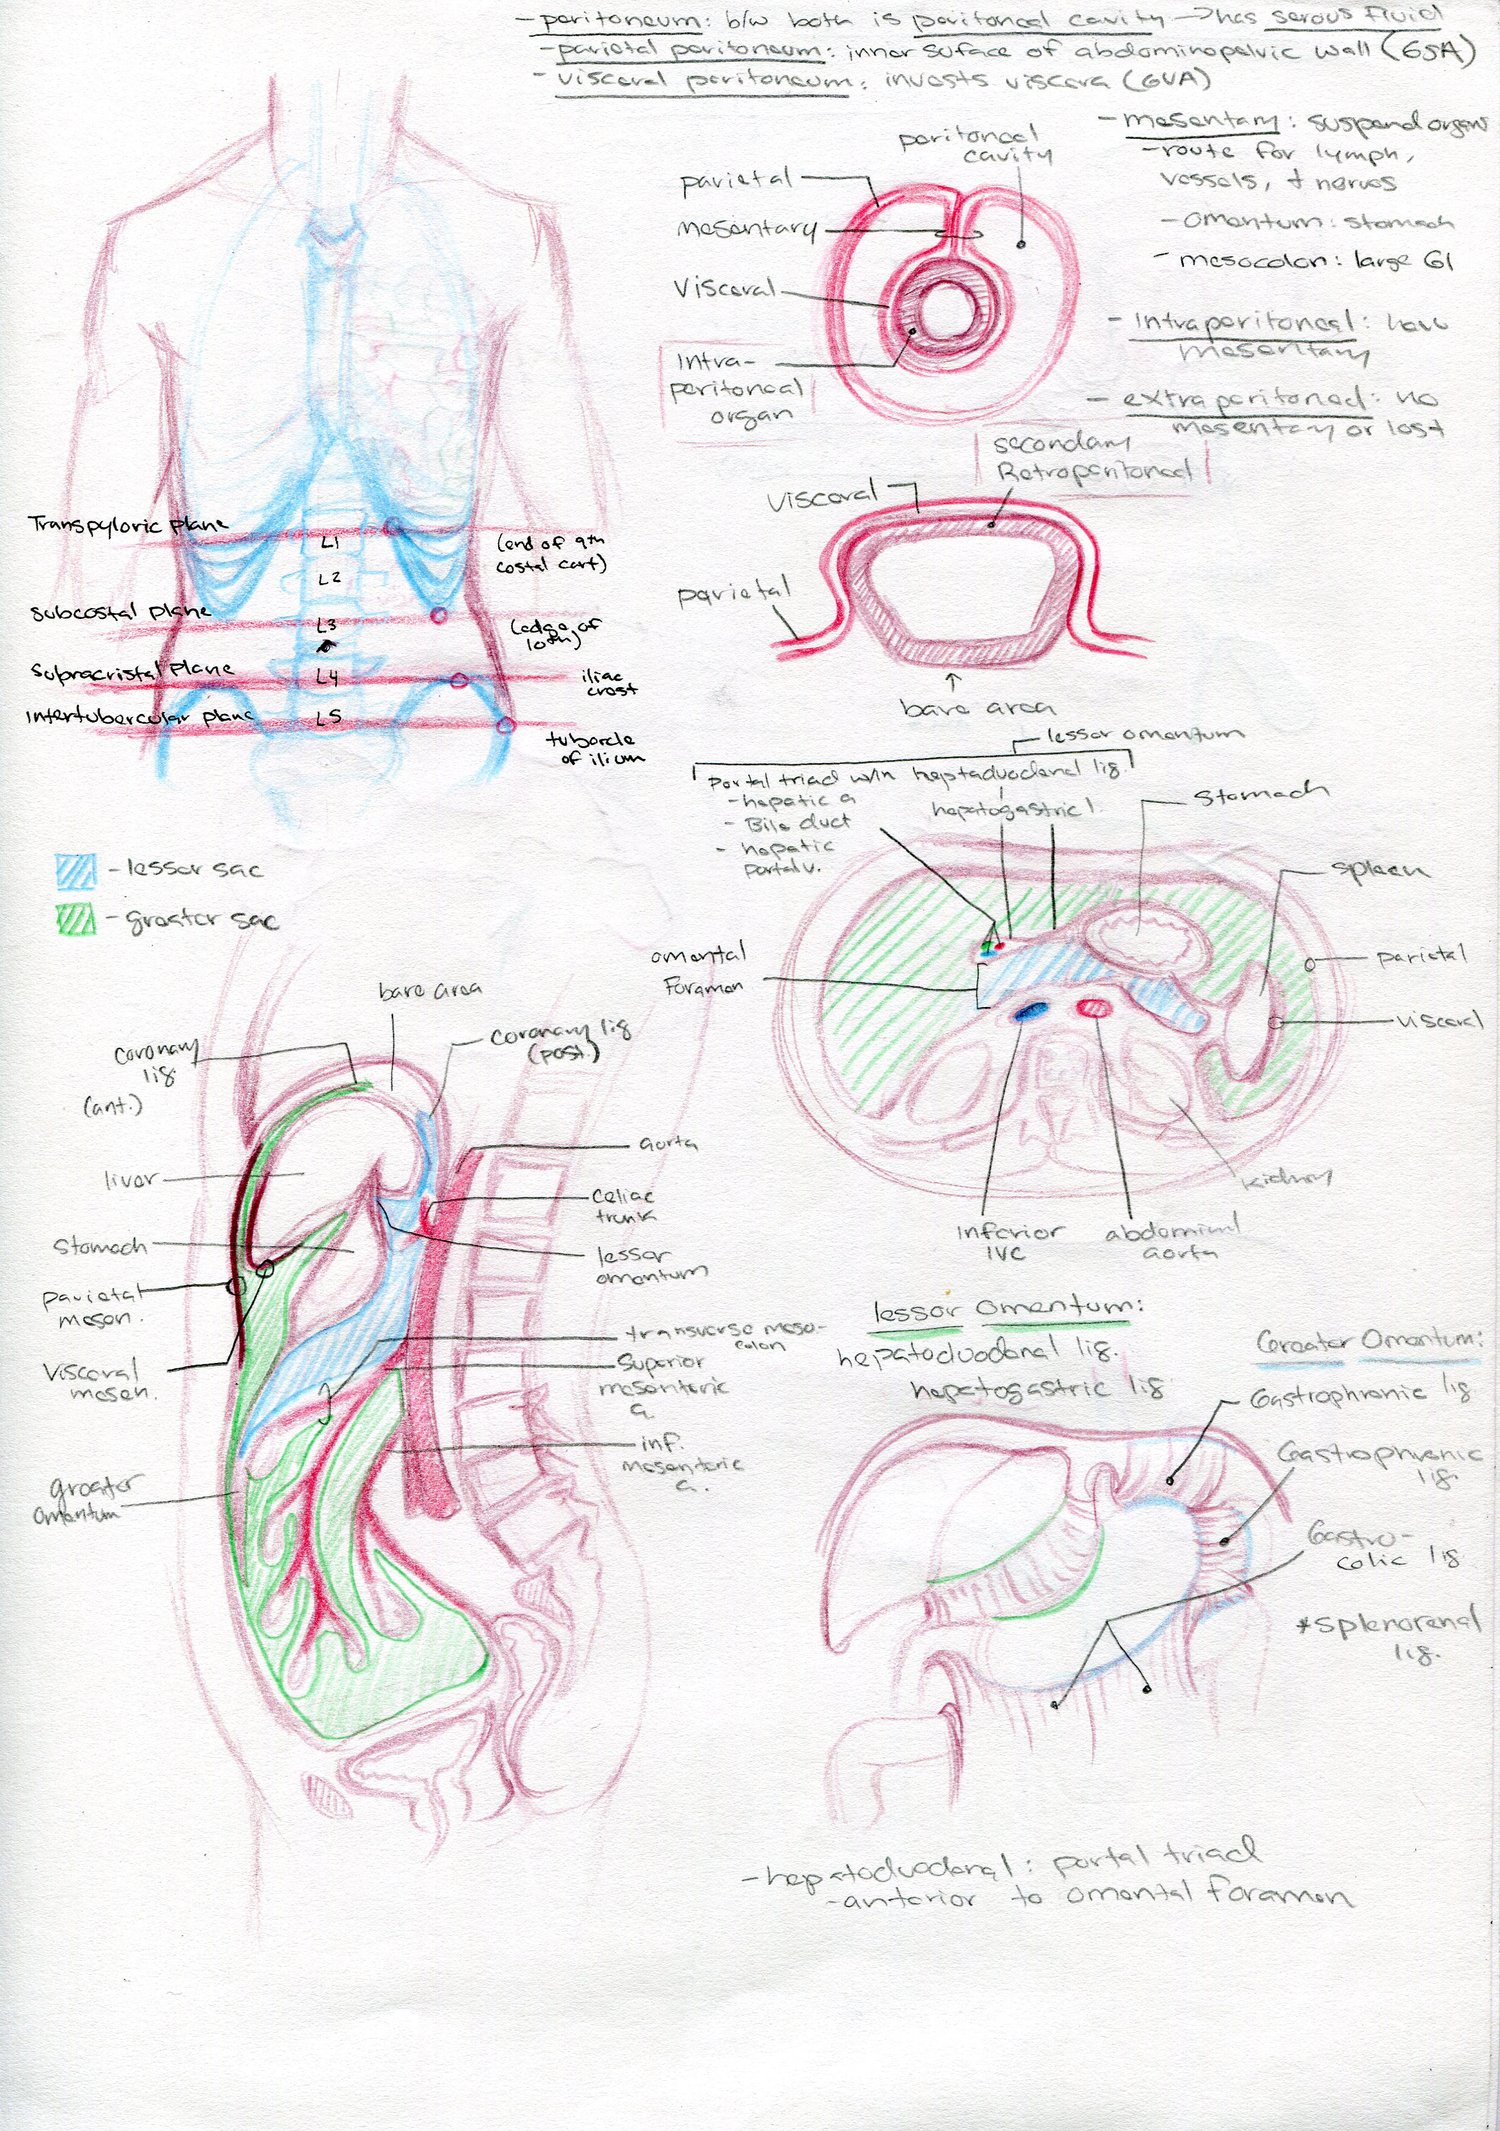 - peritoneum: b/w both is peritoneal cavity -> has serous fluid
- parietal peritoneum: inner surface of abdominopelvic wall (GSA)
- visceral peritoneum: invests viscera (GVA)
- mesentary: suspend organs
- route for lymph,
vessels, + nerves
- omentum: stomach
- mesocolon: large GI
- Intraperitoneal: have
mesentary
- extraperitoneal: no
mesentary or lost
peritoneal
cavity
parietal
mesentary
visceral
Intra-
peritoneal
organ
secondary
Retroperitoneal
visceral
parietal
bare area
Transpyloric plane
L1
(end of 9th
costal cart)
L2
subcostal plane
L3
(edge of
10th)
Supracristal Plane
L4
iliac
crest
Intertubercular plane
L5
tubercle
of ilium
lesser omentum
Portal triad w/in heptaduodenal lig.
- hepatic a
- Bile duct
- hepatic
portal v.
hepatogastric l.
Stomach
spleen
omental
Foramen
parietal
visceral
kidney
inferior
IVC
abdominal
aorta
- lesser sac
- greater sac
bare area
coronary
lig
(ant.)
coronary lig
(post.)
aorta
liver
celiac
trunk
stomach
lesser
omentum
parietal
mesen.
transverse meso-
colon
Visceral
mesen.
Superior
mesenteric
a.
inf.
mesenteric
a.
greater
omentum
lesser omentum:
hepatoduodenal lig.
hepatogastric lig
Greater Omentum:
Gastrophrenic lig
Gastrophrenic
lig.
Gastro-
colic lig
*splenorenal
lig.
- hepatoduodenal: portal triad
- anterior to omental foramen